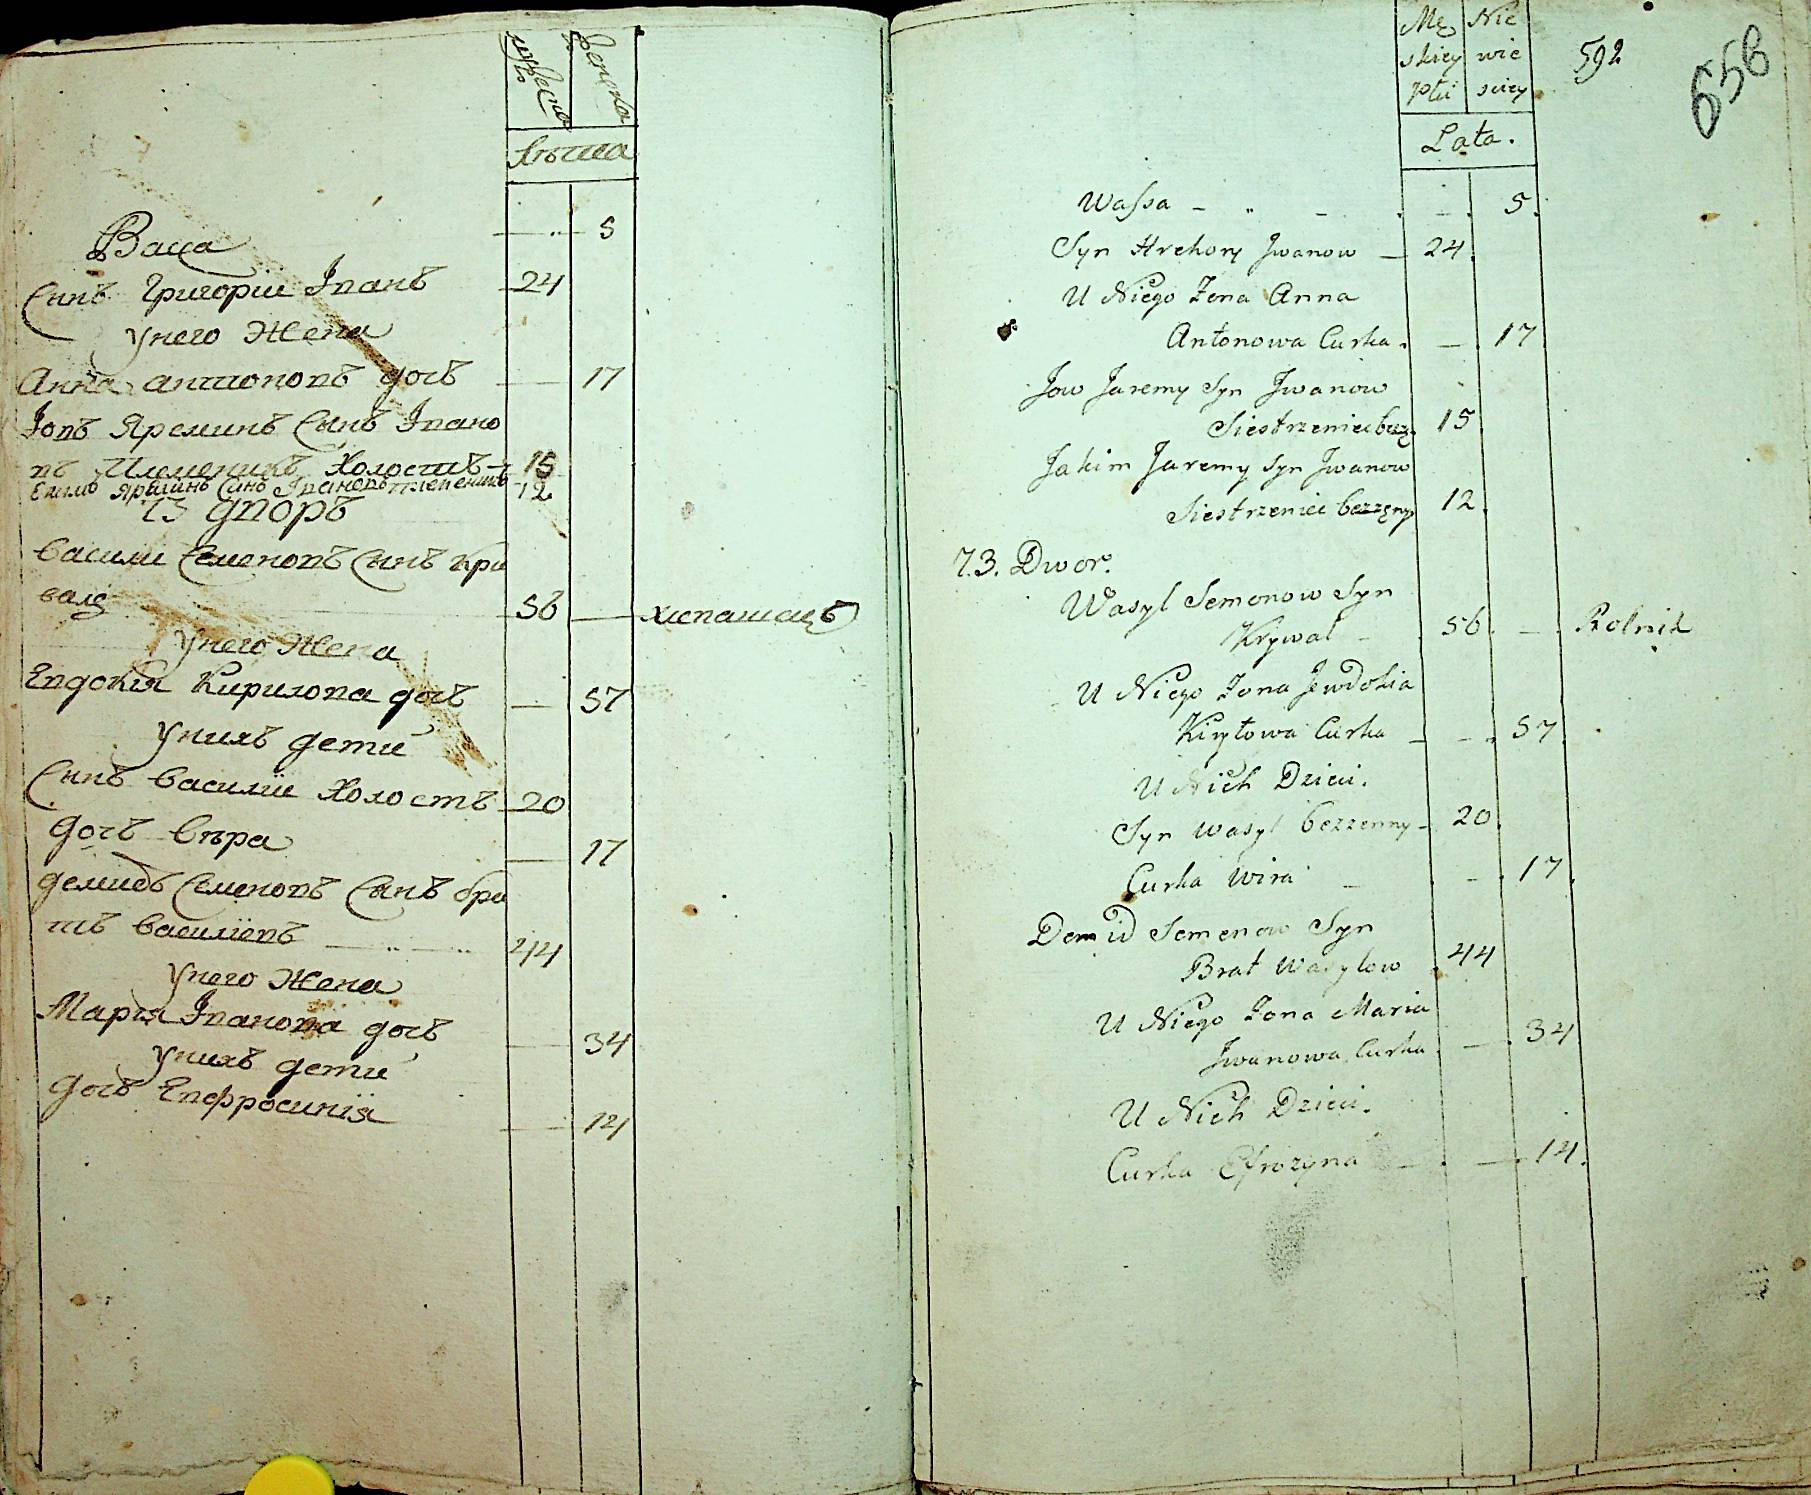 мужеска
женска
лѣта
Васа 5
Синъ Григориі Іванъ 24
Унего Жена
Анна антоновъ дочъ 17
Іовъ Яреминъ Синъ Івано
въ племеникъ Холостъ 15
Екимъ Яреминъ Синъ Івановъ племеникъ 12
73 дворъ
Василиі Семеновъ Синъ Кри
валѣ 56 хлепашецъ
Унего Жена
Евдокия Кирилова дочъ 57
Унихъ дети
Синъ Василиі Холостъ 20
дочъ Вѣра 17
демидъ Семеновъ Синъ бра
тъ Василіевъ 44
Унего Жена
Мария Іванова дочъ 34
Унихъ дети
дочъ Евфросинія 14
Mę Nie
skiey wie
Płci sciey
592
656
Lata.
Wassa 5.
Syn Hrehory Jwanow 24.
U Niego Zona Anna
Antonowa Curka. 17
Jow Jaremy Syn Jwanow
Siestrzeniec bez. 15
Jakim Jaremy Syn Jwanow
Siestrzeniec bezzęny 12.
73. Dwor.
Wasyl Semonow Syn
Krywal 56. Rolnik
U Niego Zona Jewdokia
Kiryłowa Curka 57.
U Nich Dzieci.
Syn Wasyl bezzenny 20.
Curka Wira 17.
Demid Semenow Syn
Brat Wasylow 44
U Niego Zona Maria
Jwanowa Curka 34
U Nich Dzieci.
Curka Efrozyna 14.